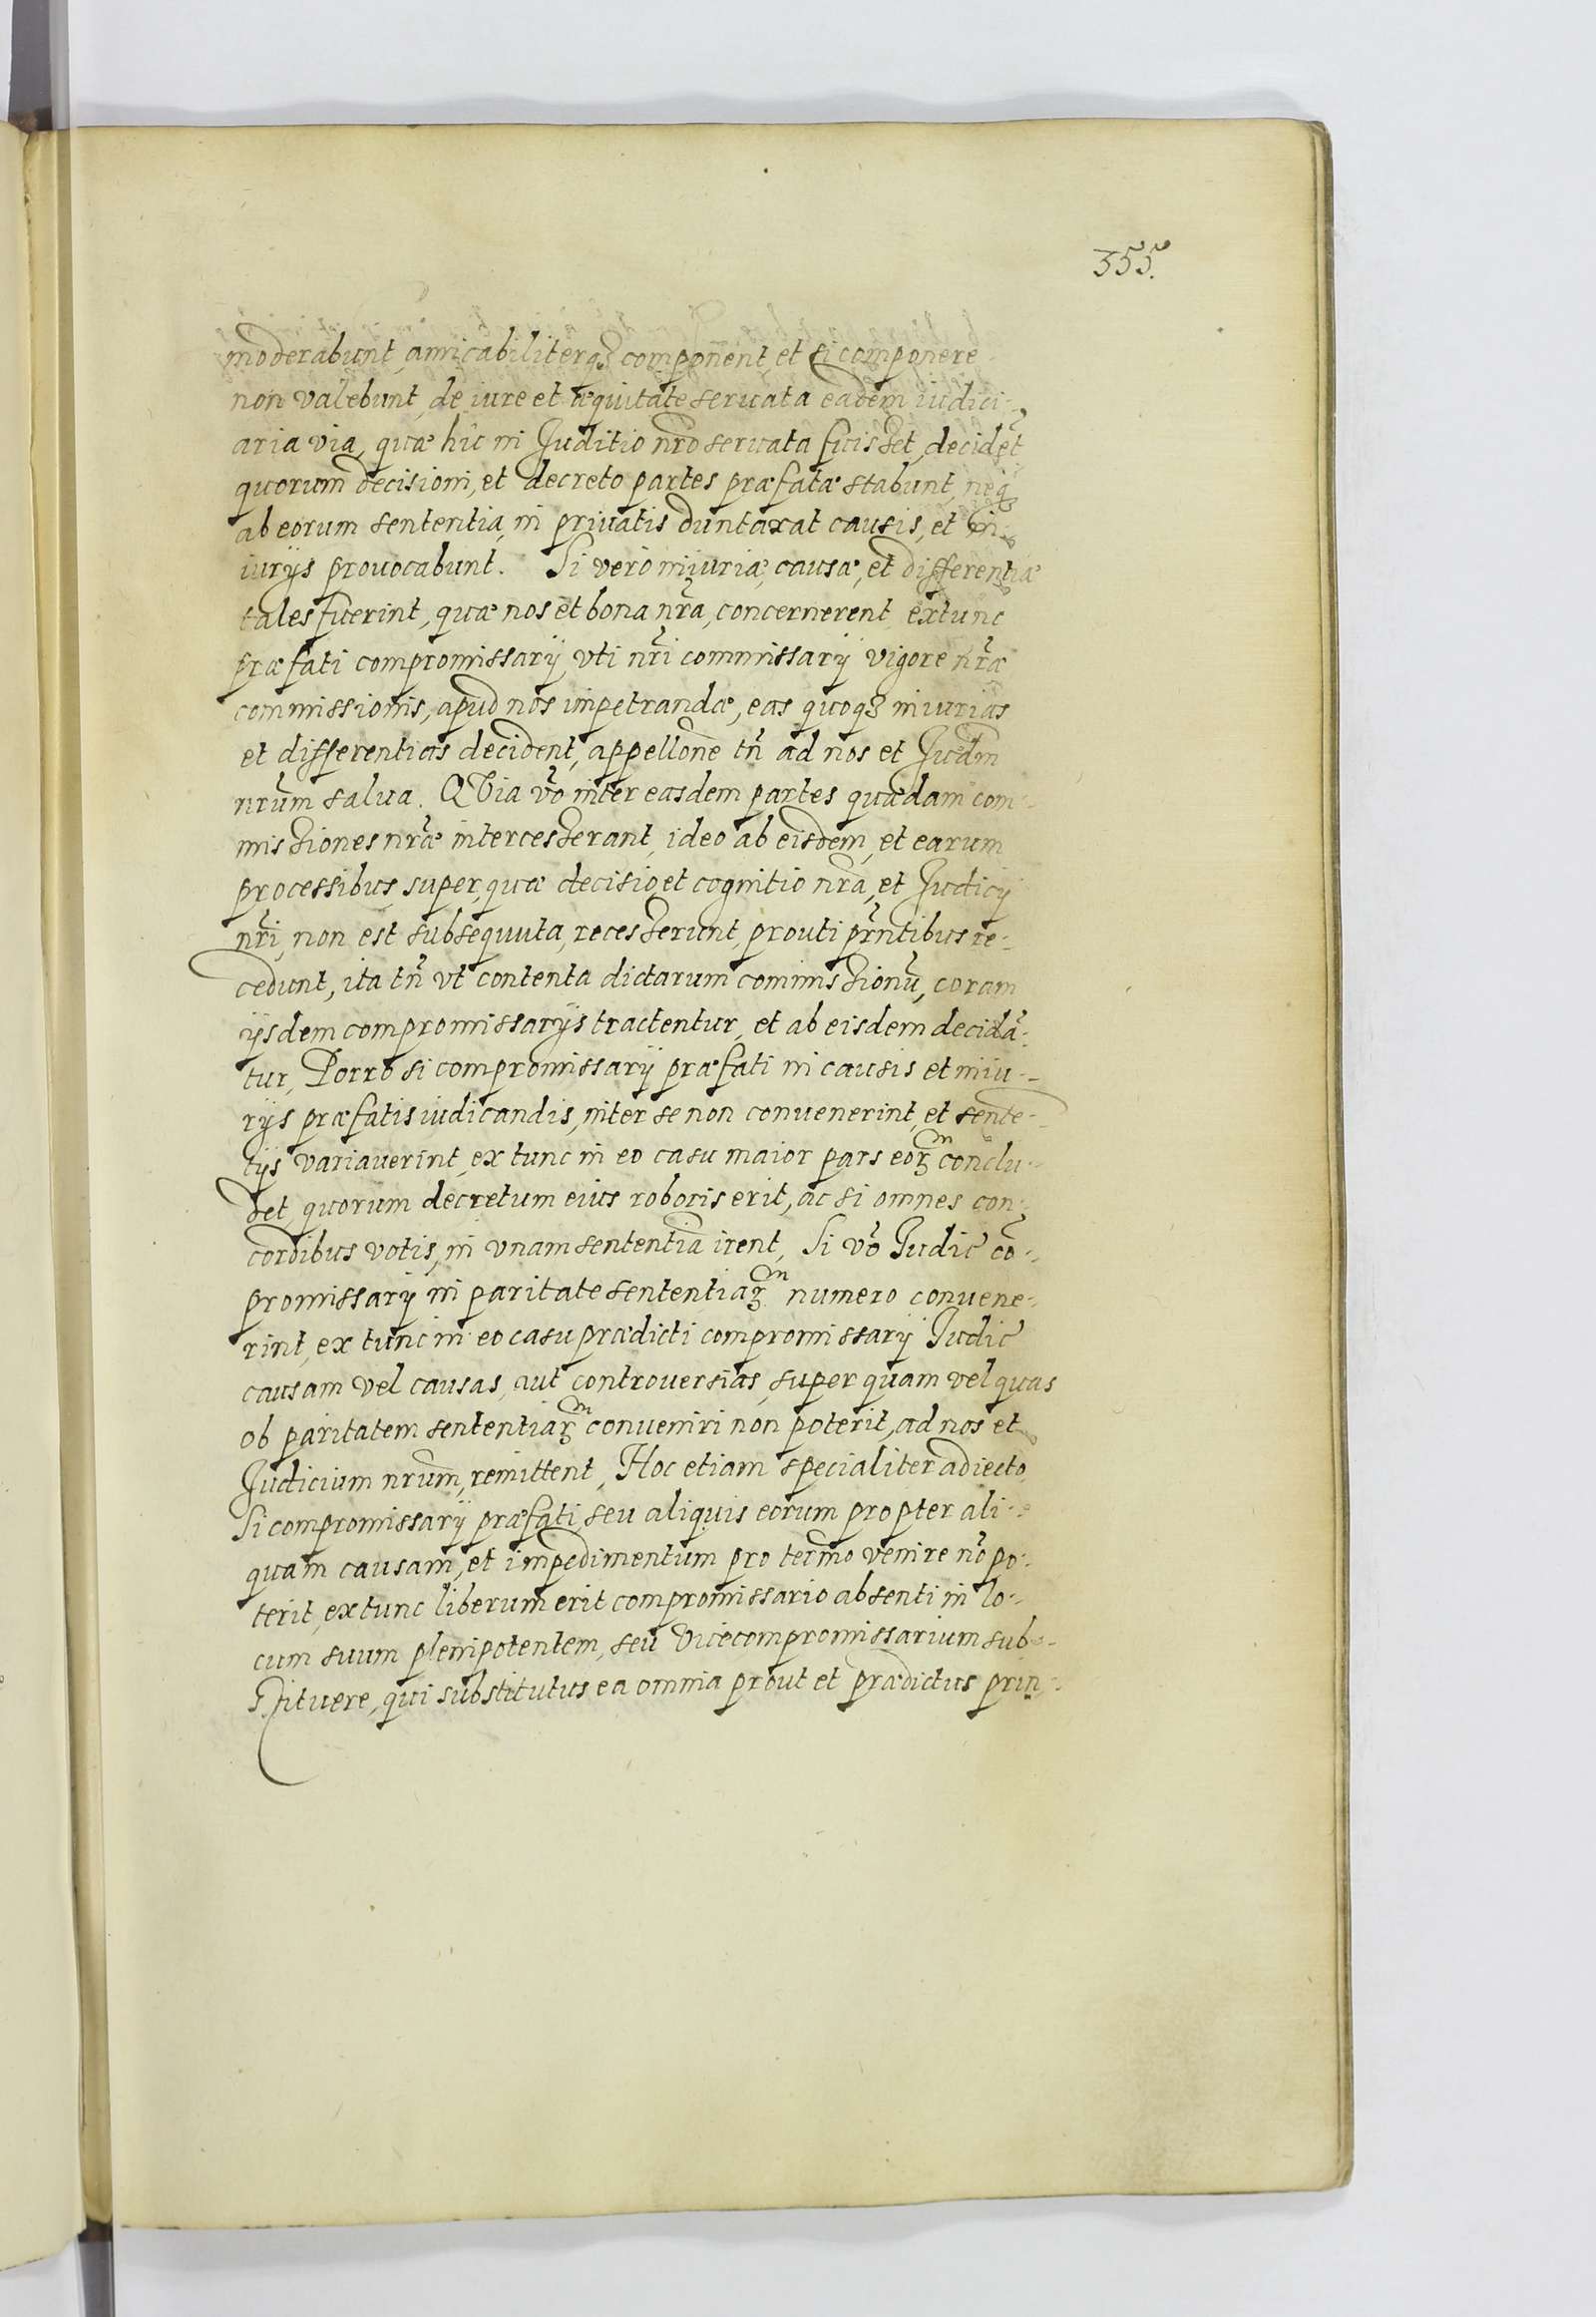 355.
moderabunt, amicabiliterq; component, et si componere
non valebunt, de iure et æquitate seruata eadem iudici-
aria via, quæ hic in Juditio nro seruata fuisset, decidet
quorum decisioni, et decreto partes præfatæ stabunt, neq;
ab eorum sententia, in priuatis duntaxat causis, et in-
iurijs prouocabunt. Si vero iniuriæ, causæ, et differentiæ
tales fuerint, quæ nos et bona nra, concernerent, extunc
præfati compromissarij vti nri commissarij vigore nræ
commissionis, apud nos impetrandæ, eas quoq; iniurias
et differentias decident, appellone tn ad nos et Judm
nrum salua. QVia vo inter easdem partes quædam com-
missiones nræ intercesserant, ideo ab eisdem, et earum
processibus, super, quæ decisio, et cognitio nra, et Judicij
nri, non est subsequuta, recesserunt, prouti prntibus re-
cedunt, ita tn vt contenta dictarum commissionu, coram
ijsdem compromissarijs tractentur, et ab eisdem decida-
tur, Porro si compromissarij præfati in causis et iniu-
rijs præfatis iudicandis, inter se non conuenerint, et sente-
tijs variauerint, ex tunc in eo casu maior pars eorum conclu-
det, quorum decretum eius roboris erit, ac si omnes con-
cordibus votis, in vnam sententia irent, Si vo Judic co-
promissarij in paritate sententiarum numero conuene-
rint, ex tunc in eo casu prædicti compromissarij Judic
causam vel causas, aut controuersias, super quam vel quas
ob paritatem sententiarum conueniri non poterit, ad nos et
Judicium nrum, remittent, Hoc etiam specialiter adiecto,
Si compromissarij præfati, seu aliquis eorum propter ali-
quam causam, et impedimentum pro termo venire no po-
terit, extunc liberum erit compromissario absenti in lo-
cum suum plenipotentem, seu Vicecompromissarium sub-
stituere, qui substitutus ea omnia prout et prædictus prin-